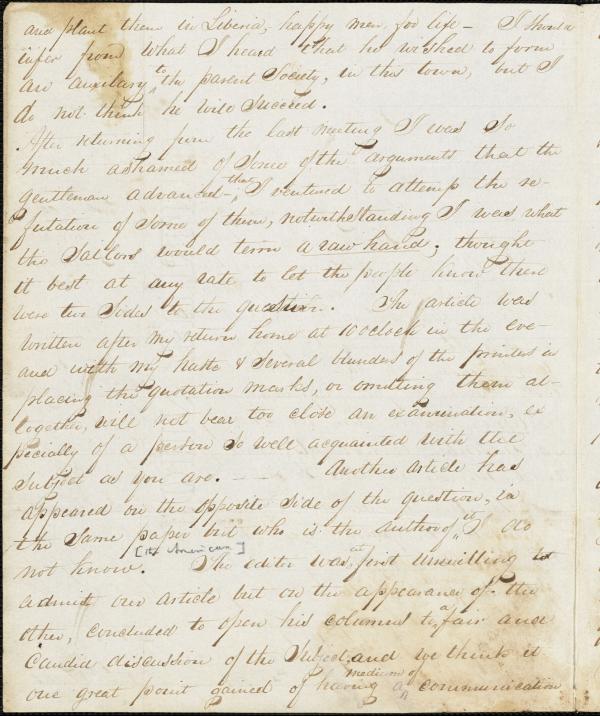 and plant them in Liberia, happy men, for life — I should
infer from what I heard that he wished to form
an auxilary to the parent Society, in this town, but I
do not think he will succeed.
After returning from the last meeting I was so
much ashamed of some of the arguments that the
gentleman advanced — that I ventured to attemp the re-
futation of some of them, notwithstanding I was what
the Sailors would term a raw hand; thought
it best at any rate to let the people know there
were two sides to the question. The article was
written after my return home at 10 oclock in the eve-
and with my haste & several blunders of the printer in
placing the quotation marks, or omitting them al-
together, will not bear too close an examination, ex
specially of a person so well acquanted with the
subject as you are. — — Another article has
appeared on the opposite side of the question, in
the same paper but who is the author of it I do
[the American]
not know. The editor was at first unwilling to
admit our article but on the appearance of the
other, concluded to open his columns to a fair and
candid discussion of the subject, and we think it
one great point gained of having a medium of communication